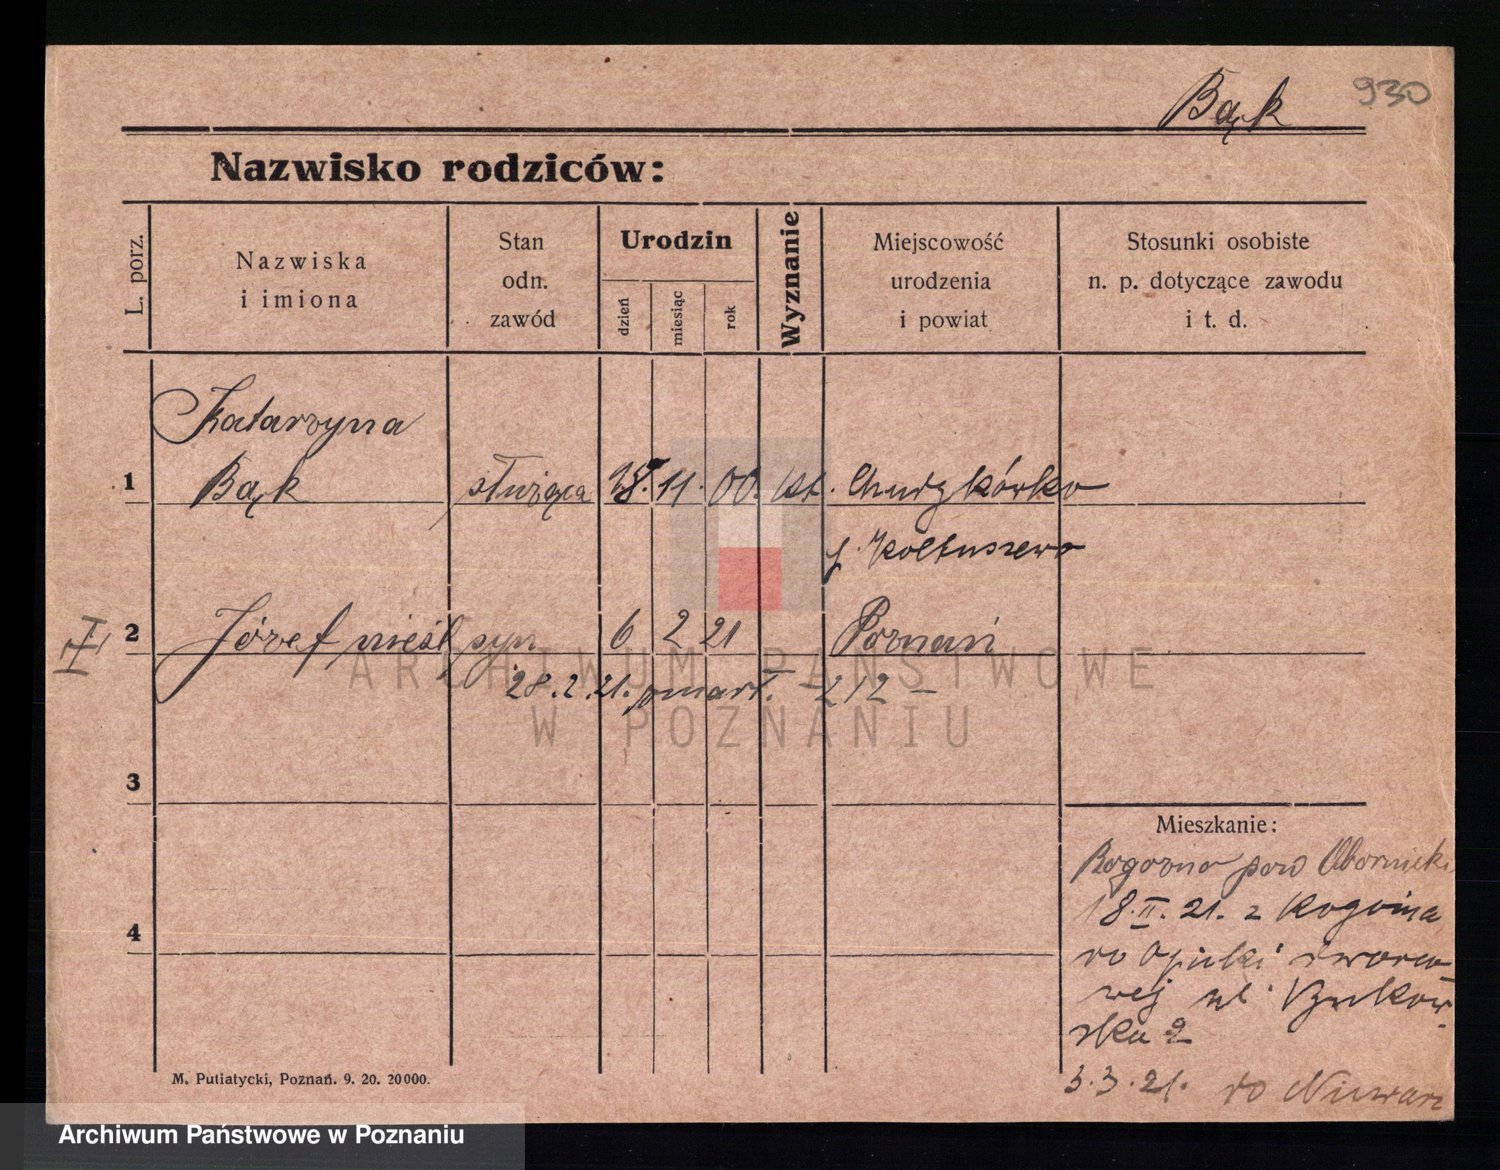 930
Bąk
Nazwisko rodziców:
L. porz.
Nazwiska
i imiona
Stan
odn.
zawód
Urodzin
dzień
miesiąc
rok
Wyznanie
Miejscowość
urodzenia
i powiat
Stosunki osobiste
n. p. dotyczące zawodu
i t. d.
Katarzyna
1 Bąk służąca 18. 11. 00. kat.
2 Józef nieśl syn 6 2 21 Poznań
28.2.21. zmarł. 212 —
ARCHIWUM PAŃSTWOWE
W POZNANIU
3
Mieszkanie:
Rogoźno pow Obornicki
18.II.21. z Rogoźna
do Opieki dworco-
4
wej ul.
ska 2
3.3.21. do
M. Putiatycki, Poznań. 9. 20. 20000.
Archiwum Państwowe w Poznaniu